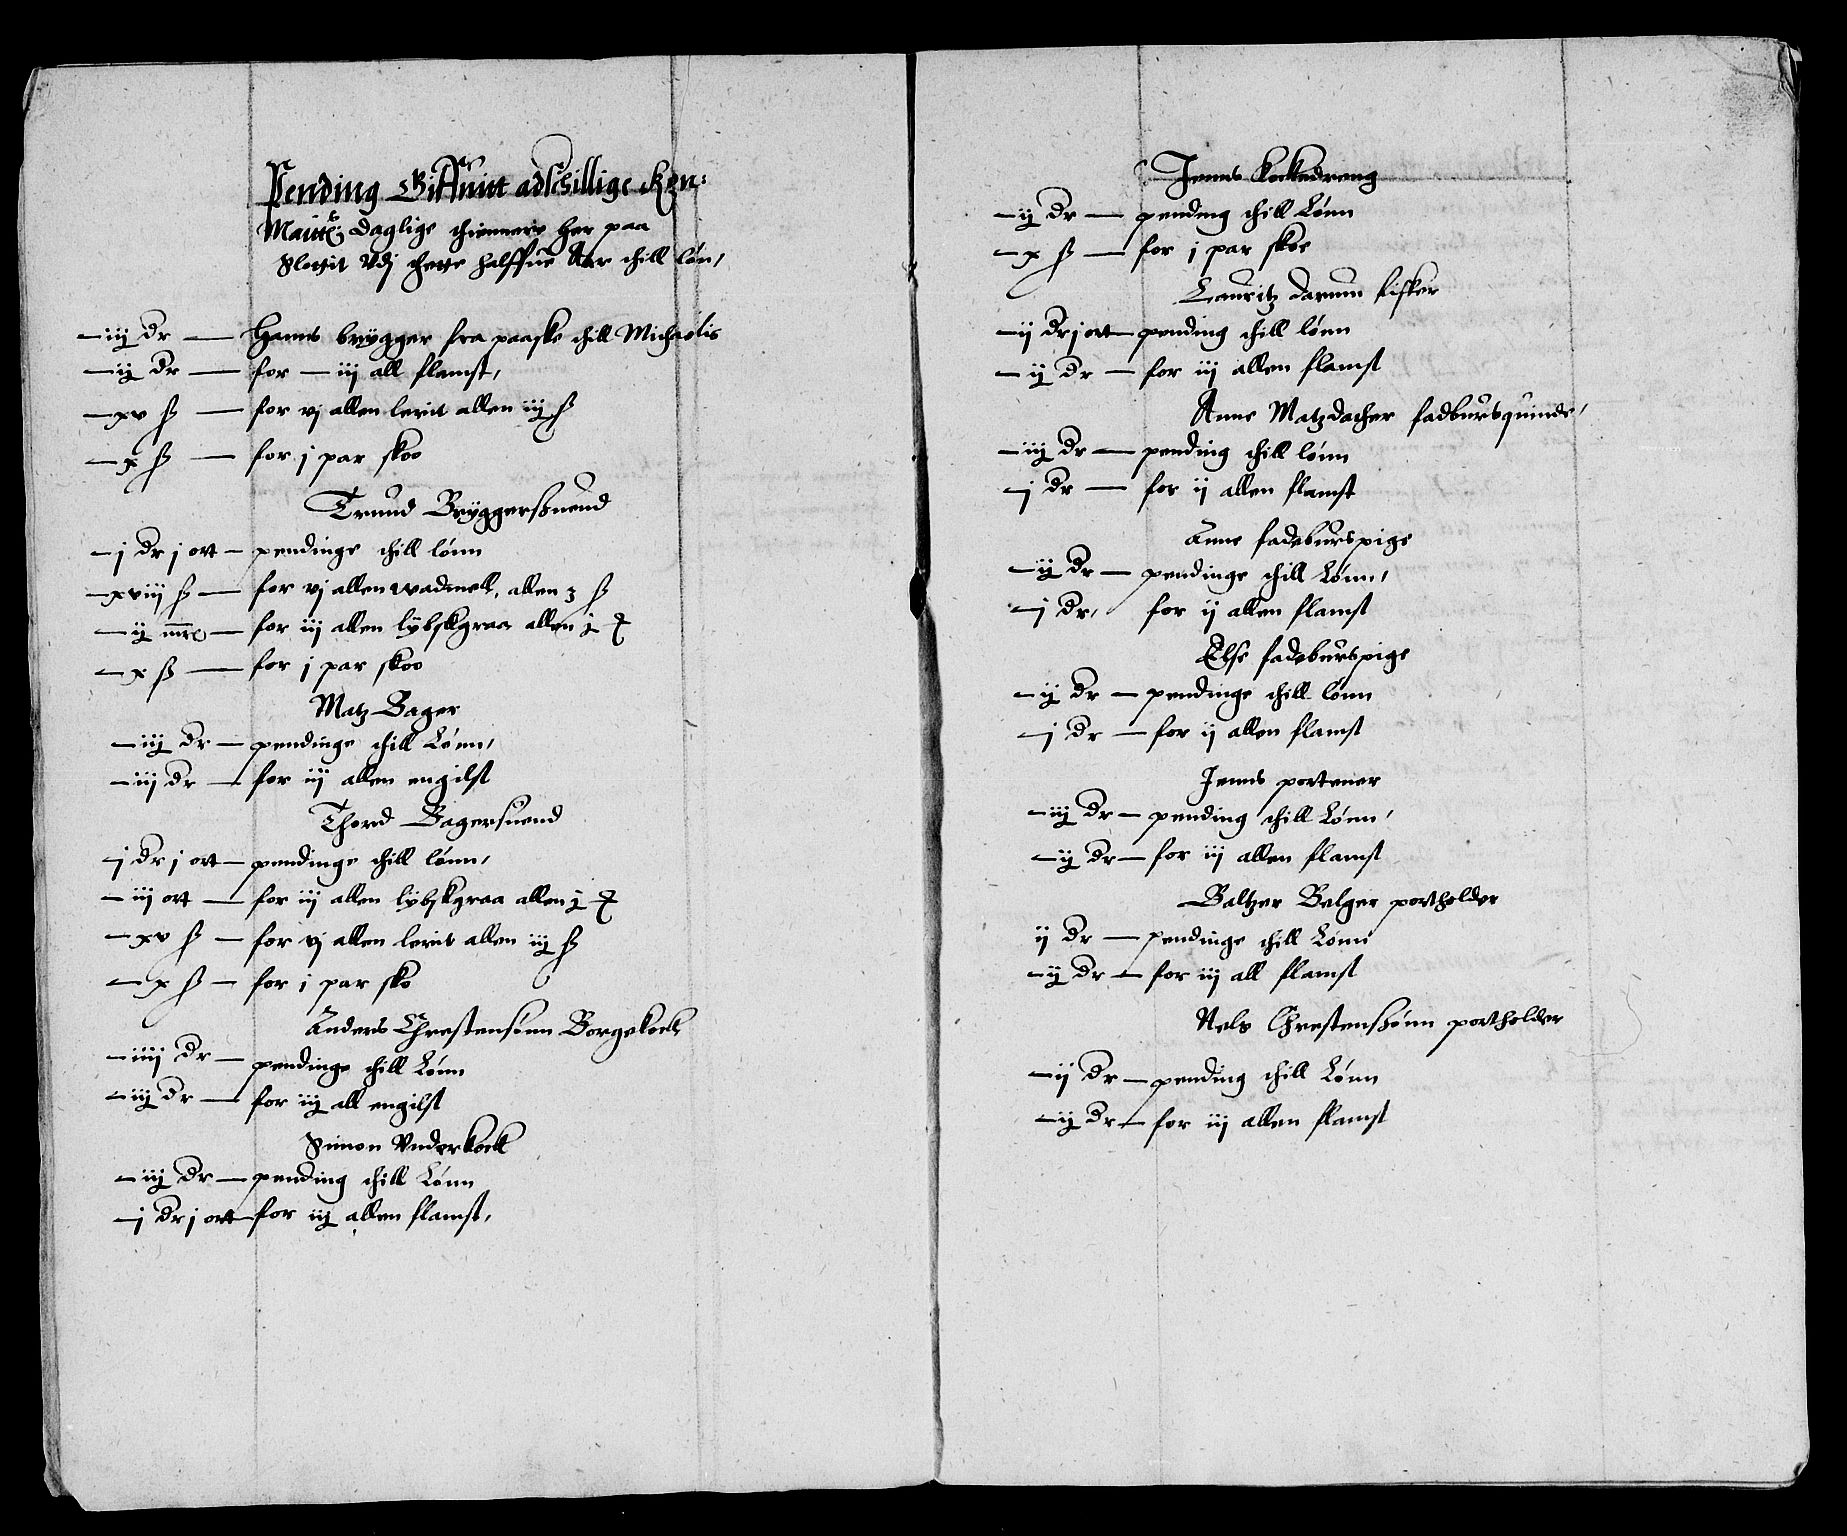 Pending Giffuitt adschillige Kon:
Maitts daglige thiennere her paa
Slottit Vdj thette halffue Aar thill løn,
iiij dr — Hanns brygger fra paaske thill Michaelis
ij dr — for — iij all flamst,
xv ß — for vj allen lerit allen iij ß
x ß — for j par skoo
Trund Bryggersuend
j dr j ort — pendinge thill lønn
xviij ß — for vj allen wadmell, allen 3 ß
ij mrc — for iij allen lybskgraa allen j
x ß — for j par skoo
Matz Bager
iiij dr — pendinge thill Lønn,
iij dr — for iij allen engilst
Thord Bagersuend
j dr j ort — pendinge thill lønn,
iij ort — for iij allen lybskgraa allen j
xv ß — for vj allen lerit allen iij ß
x ß — for j par sko
Anders Chrestensønn Borgekock
iiij dr — pendinge thill Lønn
iij dr — for iij all engilst
Simon Vnderkock
iij dr — pending thill Lønn
j dr j ort — for iij allen flamst,
Jenns Kockedreng
ij dr — pending thill Lønn
x ß — for j par skoe
Lauritz Darum fisker
ij dr j ort — pending thill lønn
ij dr — for iij allen flamst
Anne Matzdather fadbursquinde,
iij dr — pending thill lønn
j dr — for ij allen flamst
Anne fadeburspige
ij dr — pendinge thill Lønn,
j dr, for ij allen flamst
Else fadeburspige
ij dr — pendinge thill lønn
j dr — for ij allen flamst
Jenns portener
iij dr — pending thill Lønn,
ij dr — for iij allen flamst
Baltzer Belger portholder
ij dr — pendinge thill Lønn
ij dr — for iij all flamst
Nels Chrestensønn portholder
ij dr — pending thill Lønn
ij dr — for iij allen flamst